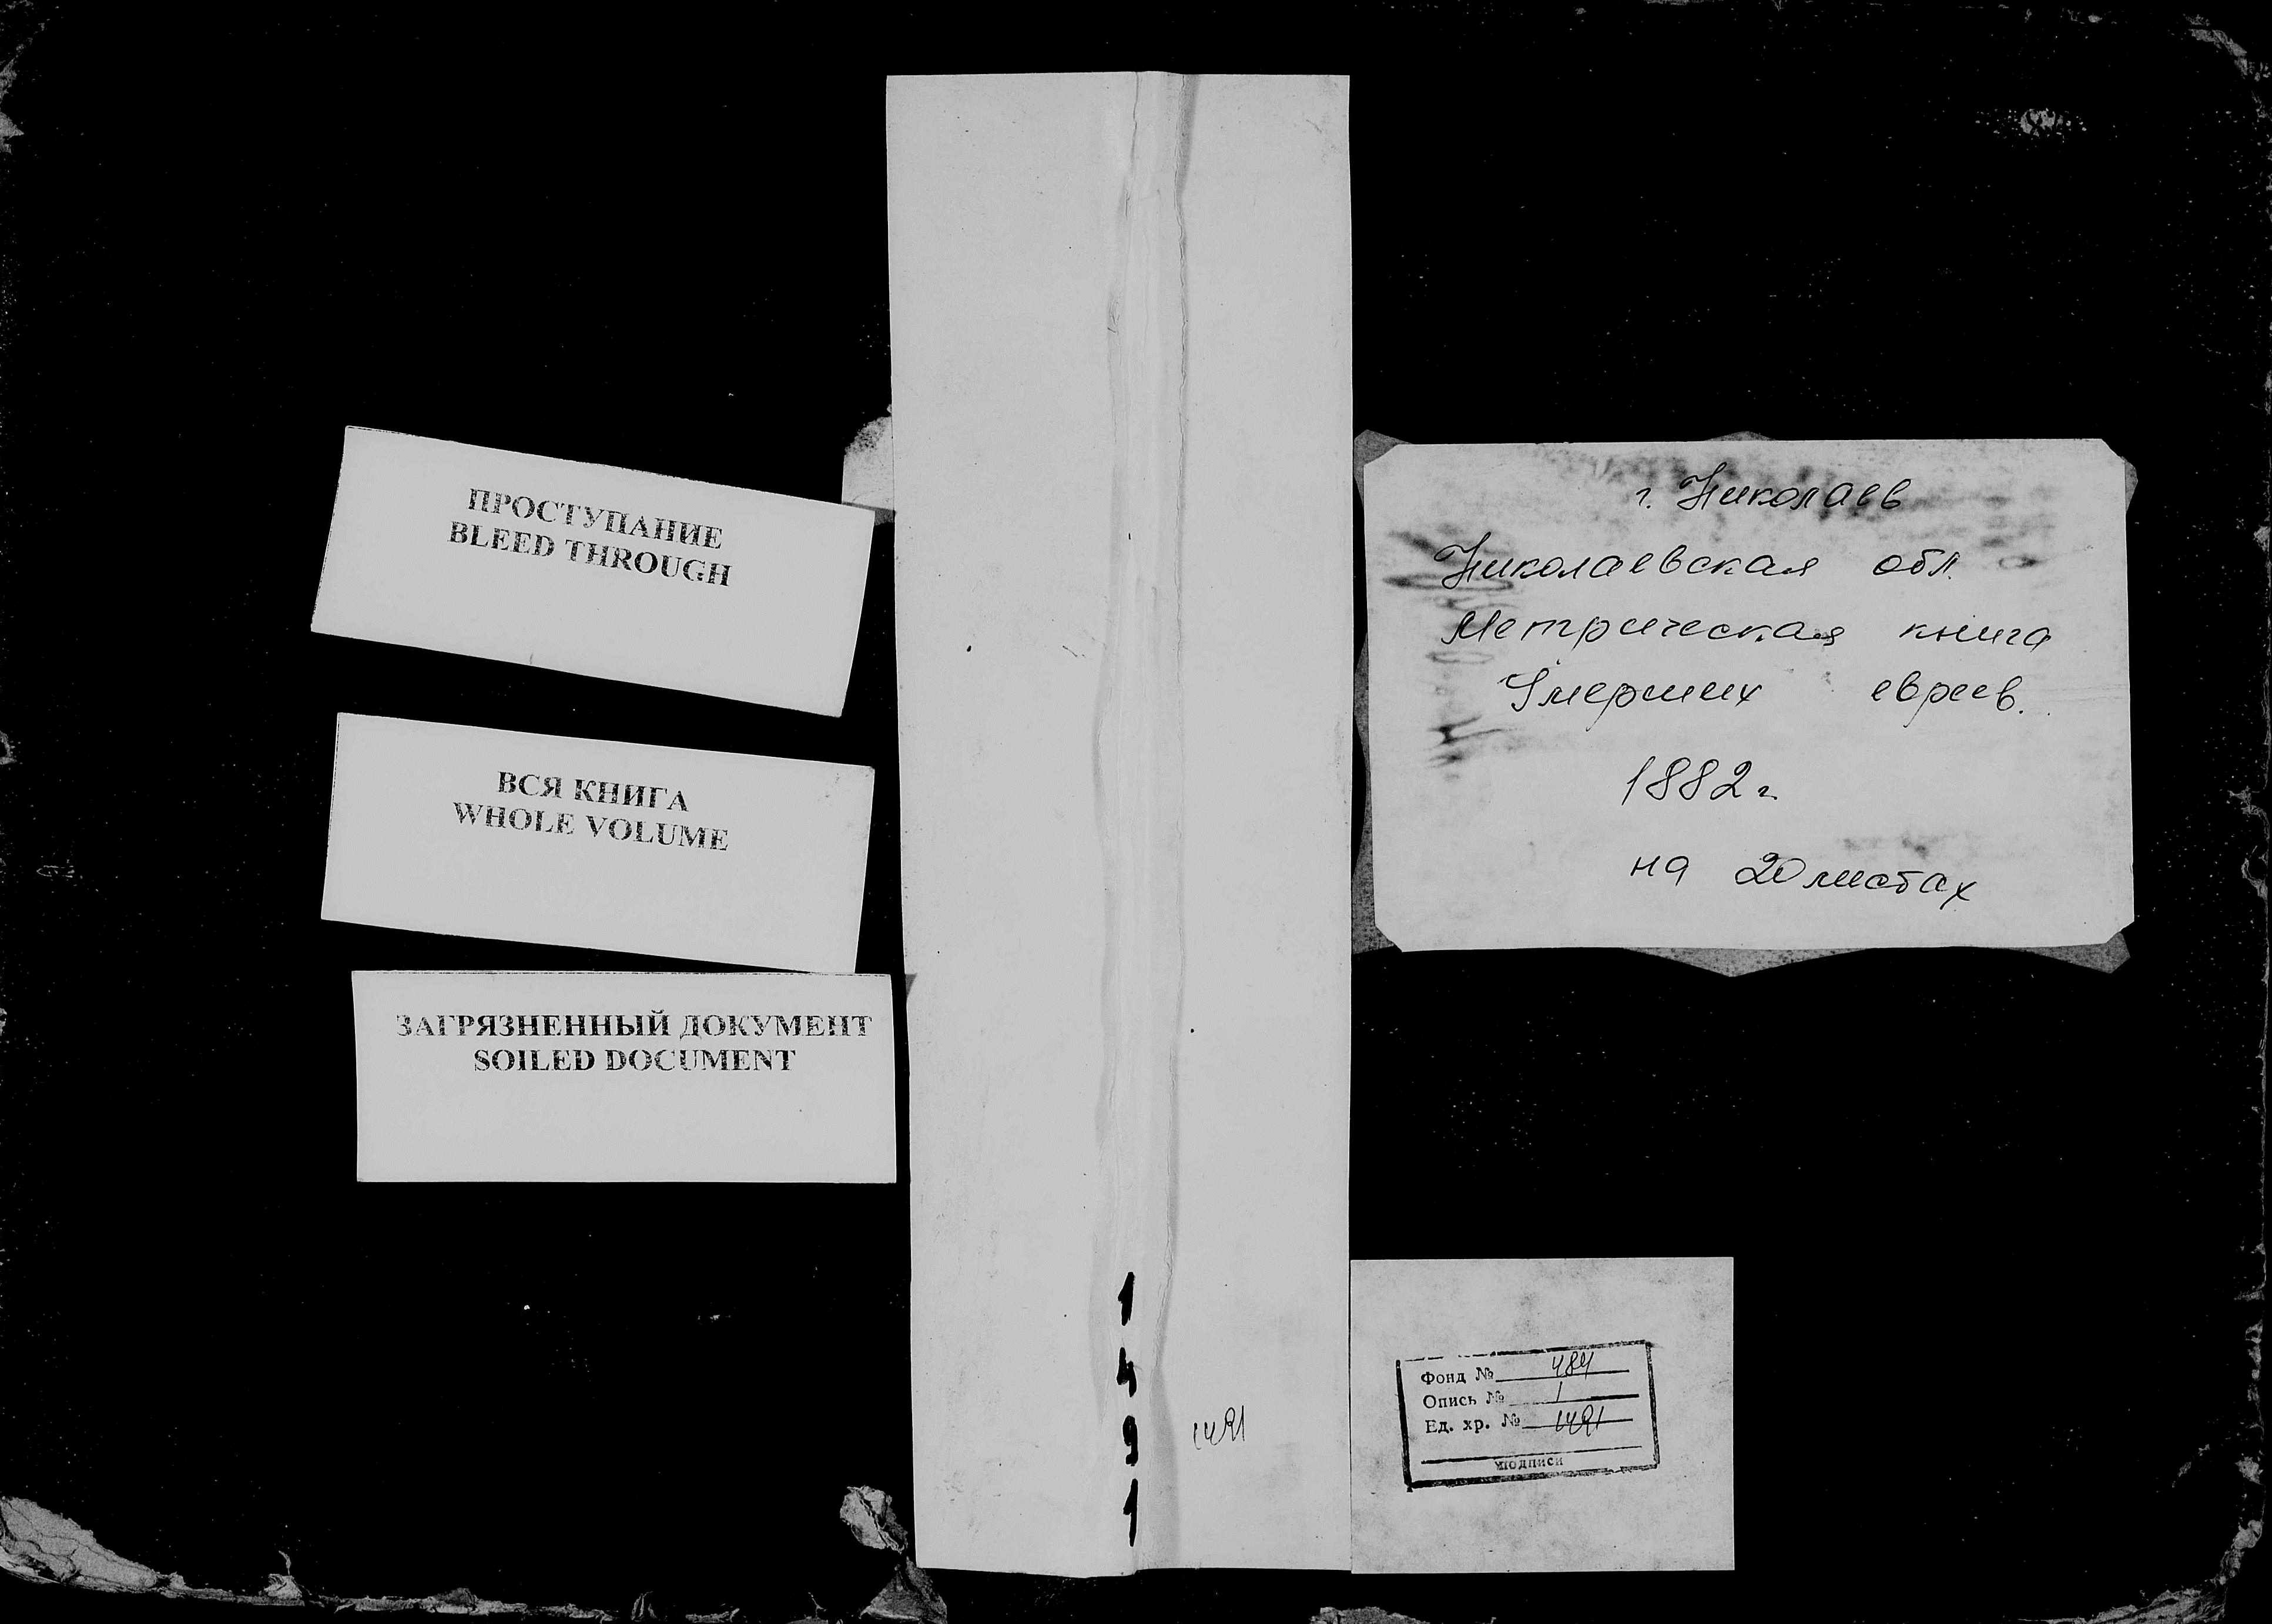 ПРОСТУПАНИЕ
BLEED THROUGH
ВСЯ КНИГА
WHOLE VOLUME
ЗАГРЯЗНЕННЫЙ ДОКУМЕНТ
SOILED DOCUMENT
1
4
9
1
1491
г. Николаев
Николаевская обл.
Метрическая книга
Умерших евреев.
1882 г.
на 20 листах
Фонд № 484
Опись № 1
Ед. хр. № 1491
подписи